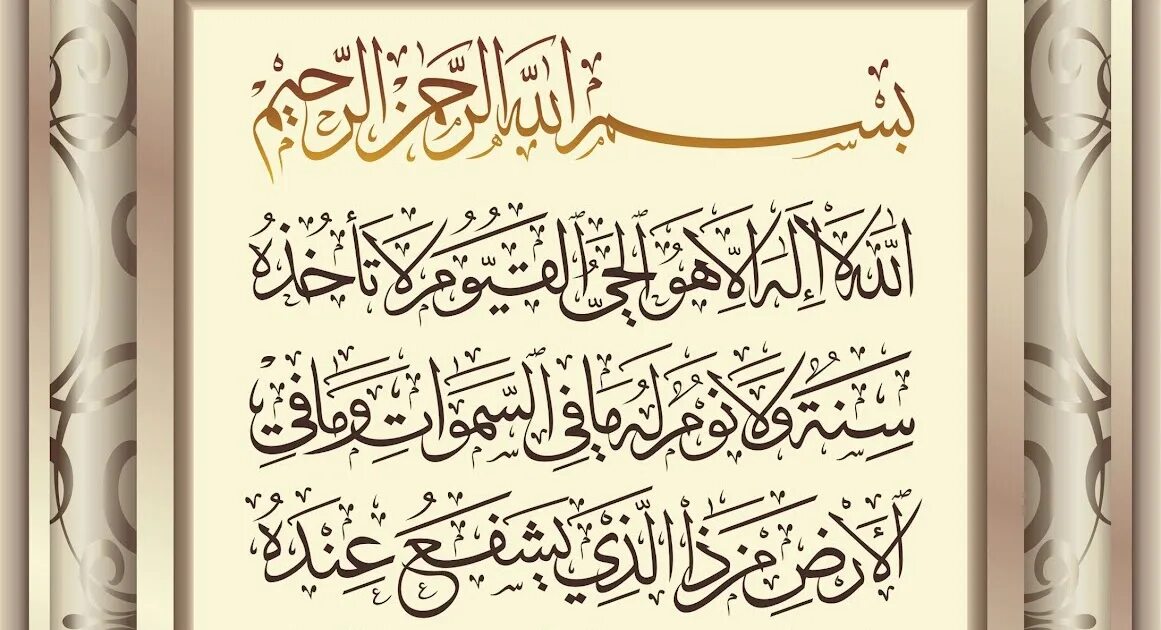 بِسْمِ اللهِ الرَّحْمنِ الرَّحِيمِ
اَللهُ لَا إِلَهَ اِلَّا هُوَ ٱلْحَيُّ ٱلْقَيُّومُ لَا تَأْخُذُهُ
سِنَةٌ وَلَا نَوْمٌ لَهُ مَا فِي ٱلسَّمَوَاتِ وَمَا فِي
ٱلْأَرْضِ مَنْ ذَا الَّذِي يَشْفَعُ عِنْدَهُ